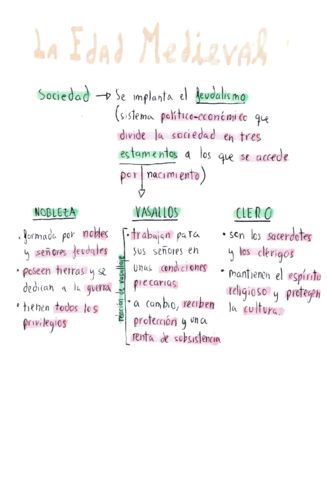 La Edad Medieval
Sociedad → Se implanta el feudalismo
(sistema político-económico que
divide la sociedad en tres
estamentos a los que se accede
por nacimiento)
NOBLEZA
· formada por nobles
y señores feudales
· poseen tierras y se
dedican a la guerra
· tienen todos los
privilegios
VASALLOS
relación de vasallaje
· trabajan para
sus señores en
unas condiciones
precarias
· a cambio, reciben
protección y una
renta de subsistencia
CLERO
· son los sacerdotes
y los clérigos
· mantienen el espíritu
religioso y protegen
la cultura.